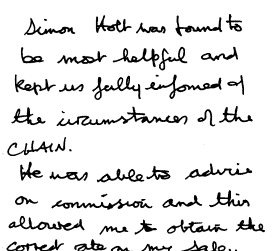 Simon Holt was found to
be most helpful and
kept us fully infomed of
the circumstances of the
CHAIN.
He was able to advise
on commission and this
allowed me to obtain the
correct rate on my sale..